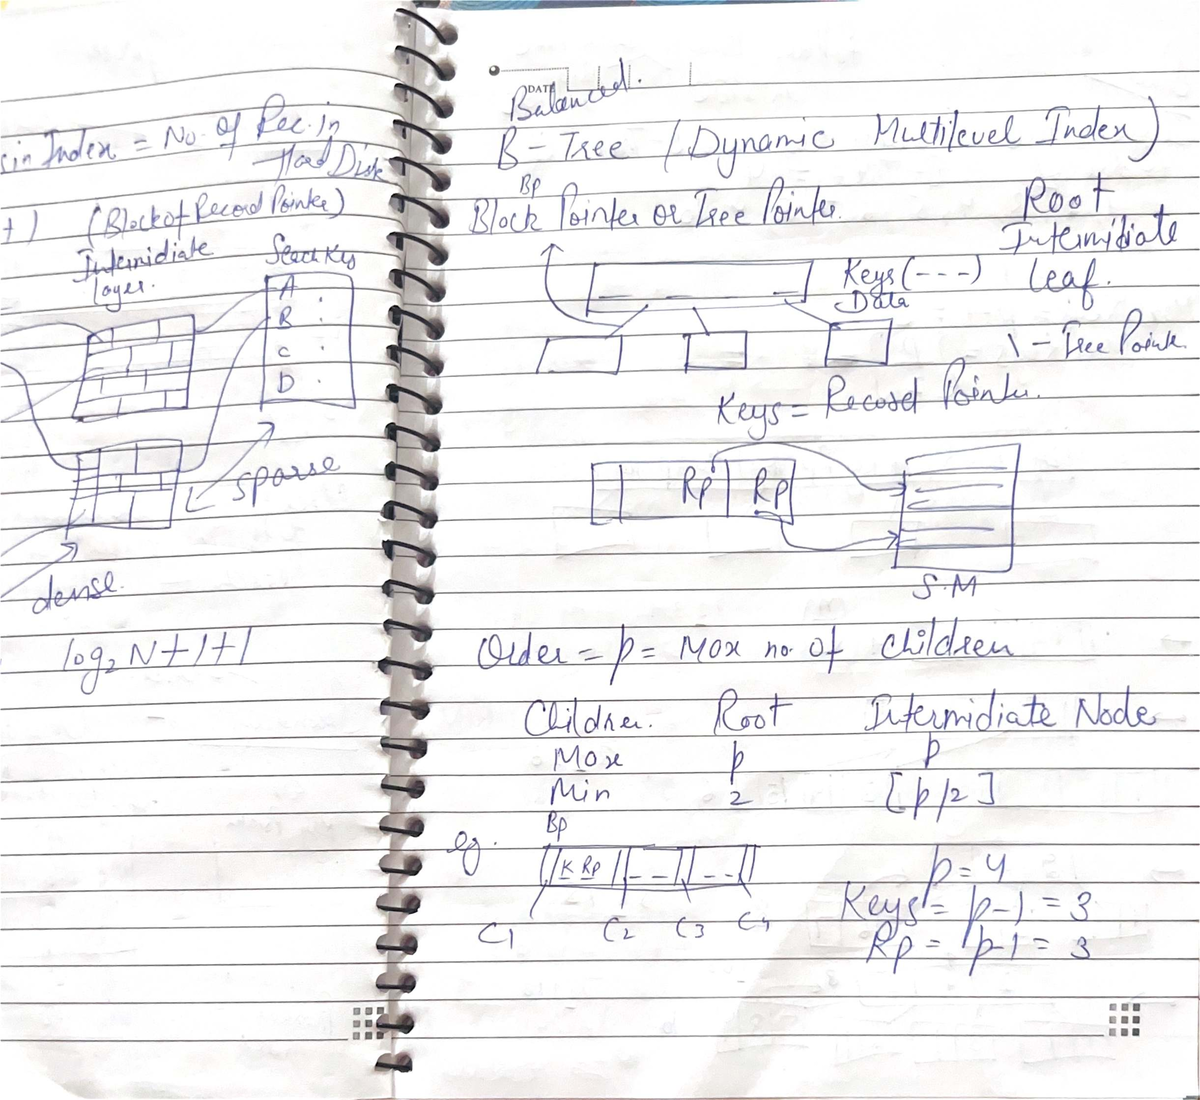 in Index = No. of Rec. in
Hard Disk
t) (Block of Record Pointer)
Intermidiate
layer.
Search Key
A
B :
C :
D .
sparse
dense.
log₂ N + 1 + 1
DATE
Balanced.
B - Tree (Dynamic Multilevel Index)
Bp
Block Pointer or Tree Pointer.
Root
Intermidiate
leaf.
Keys (- - -)
Data
\ - Tree Pointer.
Keys = Record Pointer.
Rp Rp
S.M
Order = p = Max no. of children
Children. Root Intermidiate Node
Max p p
Min 2 [p/2]
Bp
eg. K Rp
C1 C2 C3 C4
p = 4
Keys = p-1 = 3
Rp = p-1 = 3